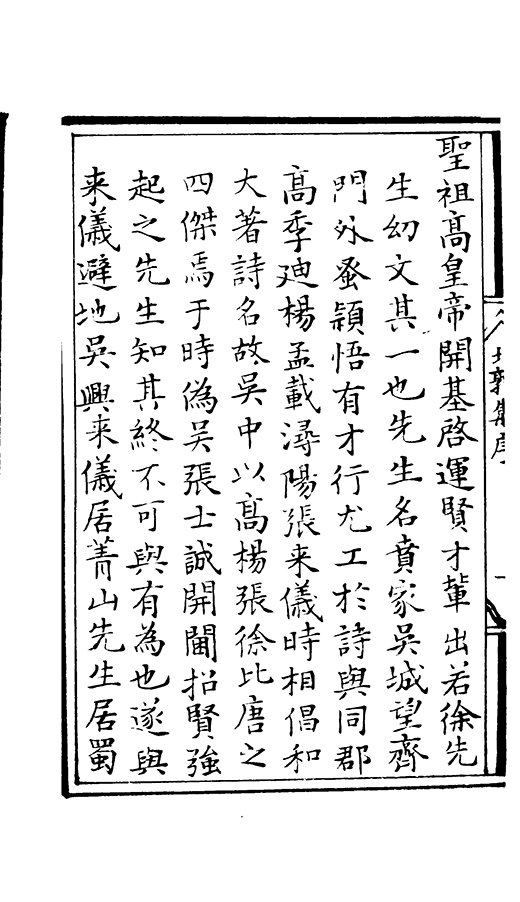 聖祖高皇帝開基啓運賢才輩出若徐先
生幼文其一也先生名賁家吳城望齊
門外蚤穎悟有才行尤工於詩與同郡
高季廸楊孟載潯陽張来儀時相倡和
大著詩名故吳中以高楊張徐比唐之
四傑焉于時偽吳張士誠開閫招賢強
起之先生知其終不可與有為也遂與
来儀避地吳興来儀居菁山先生居蜀
北郭集序
一